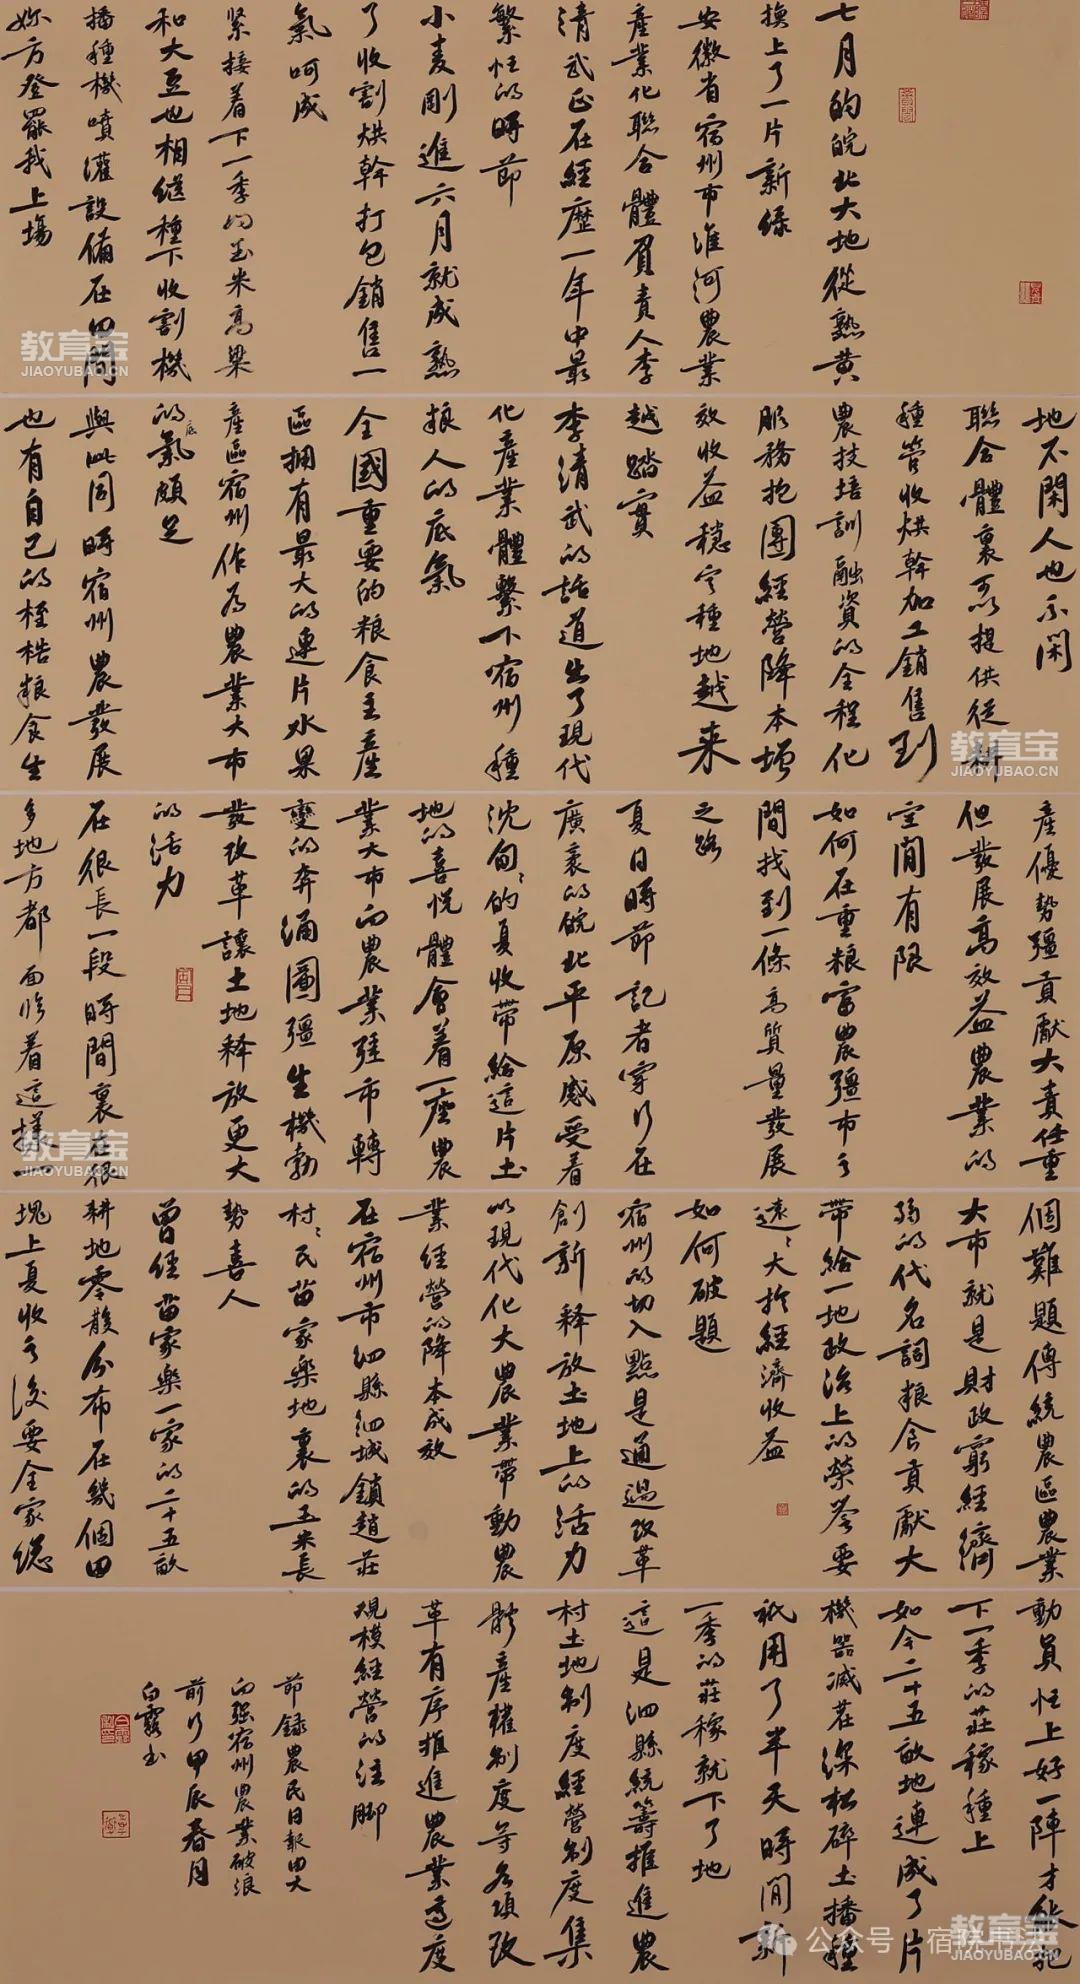 七月的皖北大地從熟黄
換上了一片新緑
安徽省宿州市淮河農業
產業化聯合體負責人李
清武正在經歷一年中最
繁忙的時節
小麦剛進六月就成熟
了收割烘幹打包銷售一
氣呵成
緊接着下一季的玉米高粱
和大豆也相继種下收割機
播種機噴灌設備在田間
妳方登罷我上場
地不閑人也不閑
聯合體裏可以提供從耕
種管收烘幹加工銷售到
農技培訓融資的全程化
服務抱團經營降本增
效收益穩定種地越来
越踏實
李清武的話道出了現代
化產業體繫下宿州種
粮人的底氣
全國重要的粮食主產
區拥有最大的連片水果
產區宿州作为農業大市
的底氣頗足
與此同時宿州農發展
也有自己的桎梏粮食生
產優勢彊貢獻大責任重
但發展高效益農業的
空間有限
如何在重粮富農彊市之
間找到一條高質量發展
之路
夏日時節記者穿行在
廣袤的皖北平原感受着
沈甸〻的夏收帶給這片土
地的喜悦體會着一座農
業大市向農業强市轉
變的奔涌圖彊生機勃
發改革讓土地释放更大
的活力
在很長一段時間裏在很
多地方都面临着這樣一
個難題傳統農區農業
大市就是財政窮經濟
弱的代名詞粮食貢獻大
帶給一地政治上的榮譽要
遠〻大於經濟收益
如何破題
宿州的切入點是通過改革
創新释放土地上的活力
以現代化大農業帶動農
業經營的降本成效
在宿州市泗縣泗城鎮趙莊
村〻民苗家樂地裏的玉米長
勢喜人
曾經苗家樂一家的二十五畝
耕地零散分布在幾個田
塊上夏收之後要全家總
動員忙上好一陣才能把
下一季的莊稼種上
如今二十五畝地連成了片
機器减茬深松碎土播種
祇用了半天時間新
一季的莊稼就下了地
這是泗縣統籌推進農
村土地制度經營制度集
體產權制度等各項改
革有序推進農業適度
規模經營的注脚
節録農民日報由大
向强宿州農業破浪
前行甲辰春月
白露书
教育宝
JIAOYUBAO.CN
教育宝
JIAOYUBAO.CN
教育宝
JIAOYUBAO.CN
教育宝
JIAOYUBAO.CN
公众号·宿院书法